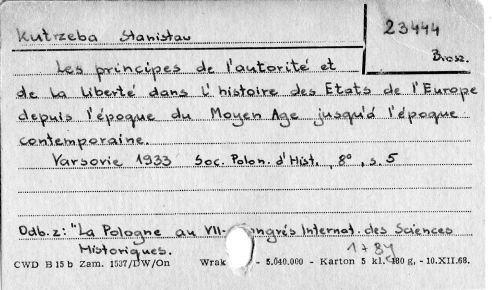 Kutrzeba Stanisław
23444
Brosz.
Les principes de l'autorité et
de la liberté dans l'histoire des Etats de l'Europe
depuis l'époque du Moyen Age jusqu'à l'époque
contemporaine.
Varsovie 1933 Soc. Polon. d'Hist., 8°, s. 5
Odb. z: "La Pologne au VII- Congrès Internat. des Sciences
Historiques.
1+8y
CWD B 15 b Zam. 1537/DW/On Wrak - 5.040.000 - Karton 5 kl. 180 g, - 10.XII.68.